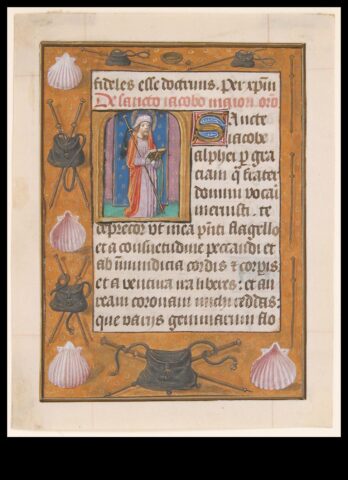 fideles esse doctrinis. Per xpm
De sancto iacobo maiori. oro
Sancte
iacobe
alphei p gra
ciam q frater
domini vocari
meruisti. te
deprecor vt mea pniti flagello
et a consuetudine peccandi et
ab inmundicia cordis et corpis
et a ventura ira liberes: et au
ream coronam michi reddas:
que varijs gemmarum flo